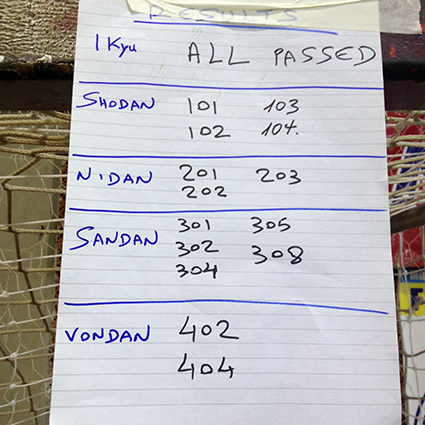 RESULTS
1 Kyu ALL PASSED
SHODAN 101 103
102 104.
NIDAN 201 203
202
SANDAN 301 305
302 308
304
YONDAN 402
404